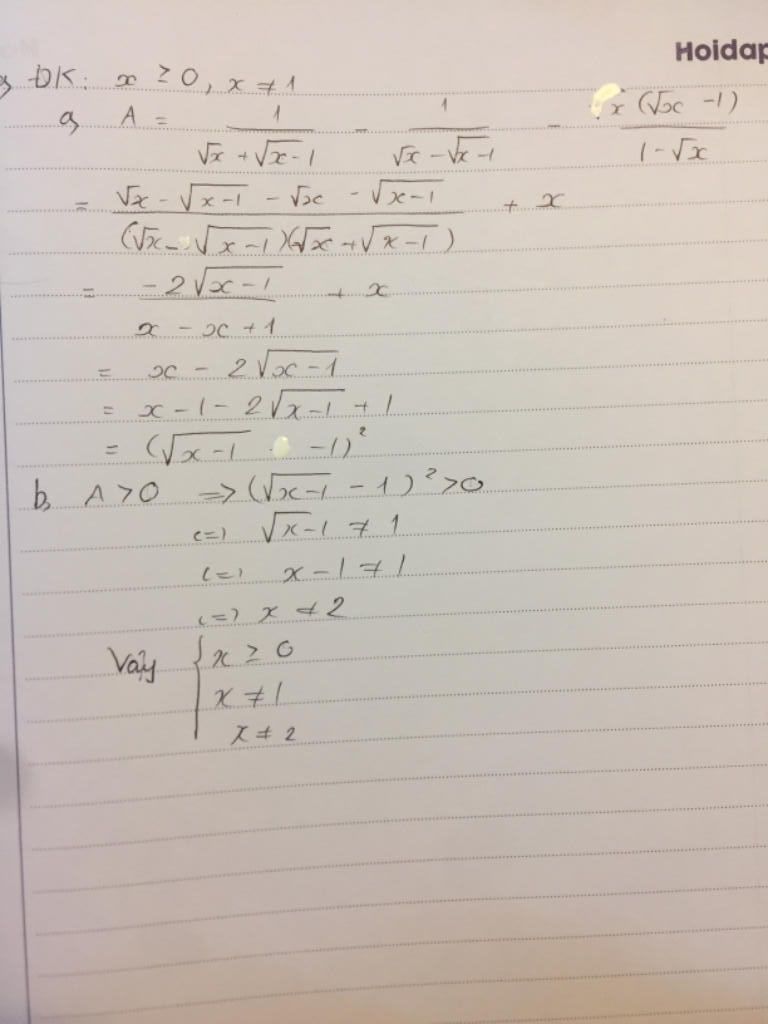 Hoidap
ĐK: x ≥ 0, x ≠ 1
a, A = 1/(√x + √(x-1)) - 1/(√x - √(x-1)) - x(√x - 1)/(1 - √x)
= (√x - √(x-1) - √x - √(x-1))/((√x - √(x-1))(√x + √(x-1))) + x
= (-2√(x-1))/(x - x + 1) + x
= x - 2√(x-1)
= x - 1 - 2√(x-1) + 1
= (√(x-1) - 1)²
b, A > 0 => (√(x-1) - 1)² > 0
(=) √(x-1) ≠ 1
(=) x - 1 ≠ 1
(=) x ≠ 2
Vậy { x ≥ 0
x ≠ 1
x ≠ 2